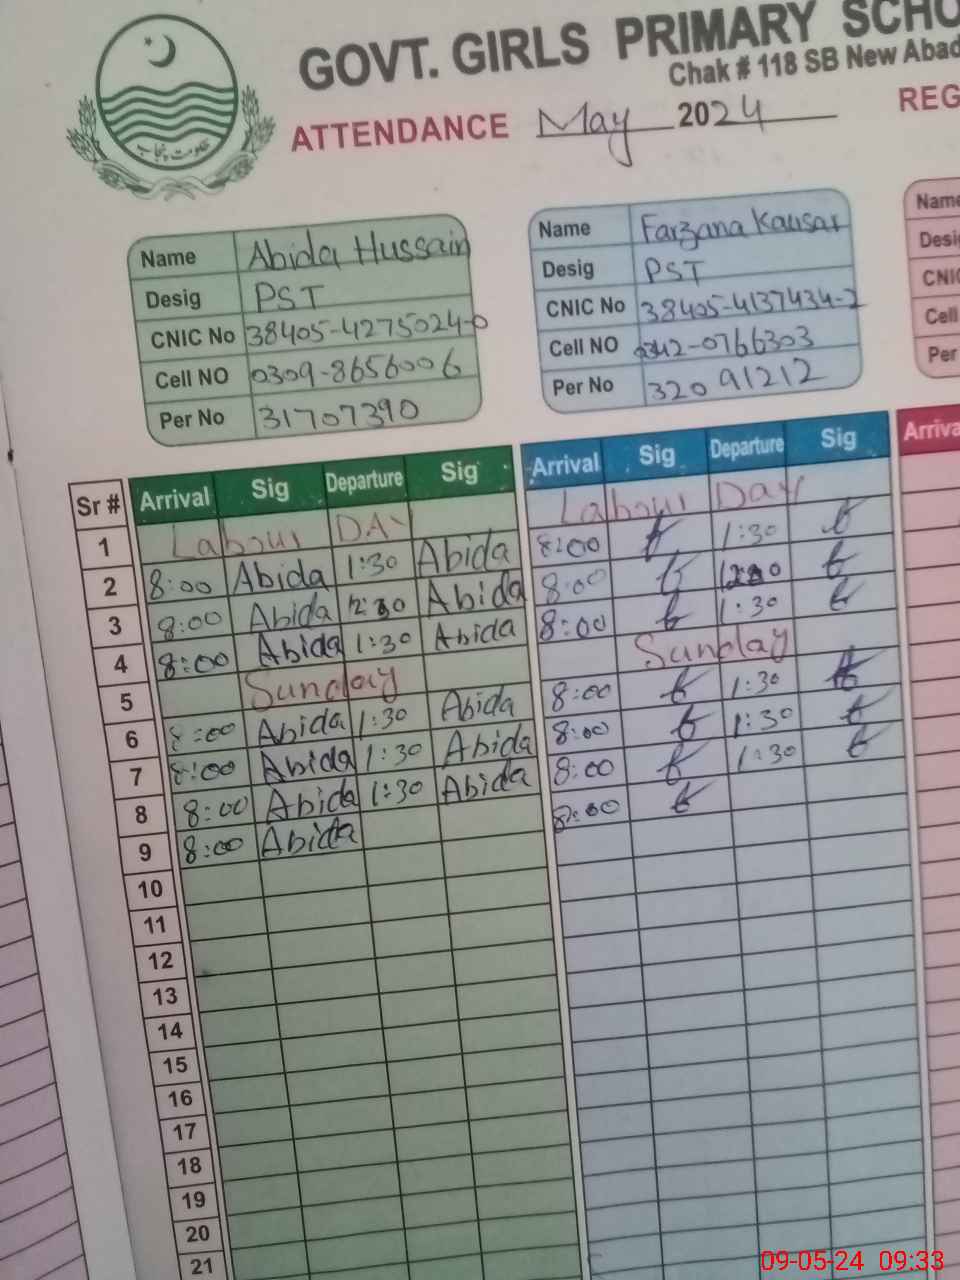 GOVT. GIRLS PRIMARY SCHO
Chak # 118 SB New Abad
ATTENDANCE May 2024 REG
حکومت پنجاب
Name Abida Hussain
Desig PST
CNIC No 38405-4275024-0
Cell NO 0309-8656006
Per No 31707390
Name Farzana Kausar
Desig PST
CNIC No 38405-4137434-2
Cell NO 0342-0766303
Per No 32091212
Name
Desig
CNIC
Cell
Per
Sr # Arrival Sig Departure Sig Arrival Sig Departure Sig Arriva
1 Labour DAY Labour Day
2 8:00 Abida 1:30 Abida 8:00 1:30
3 8:00 Abida Abida 8:00
4 8:00 Abida 1:30 Abida 8:00 1:30
5 Sunday Sunday
6 8:00 Abida 1:30 Abida 8:00 1:30
7 8:00 Abida 1:30 Abida 8:00 1:30
8 8:00 Abida 1:30 Abida 8:00 1:30
9 8:00 Abida 8:00
10
11
12
13
14
15
16
17
18
19
20
21
09-05-24 09:33